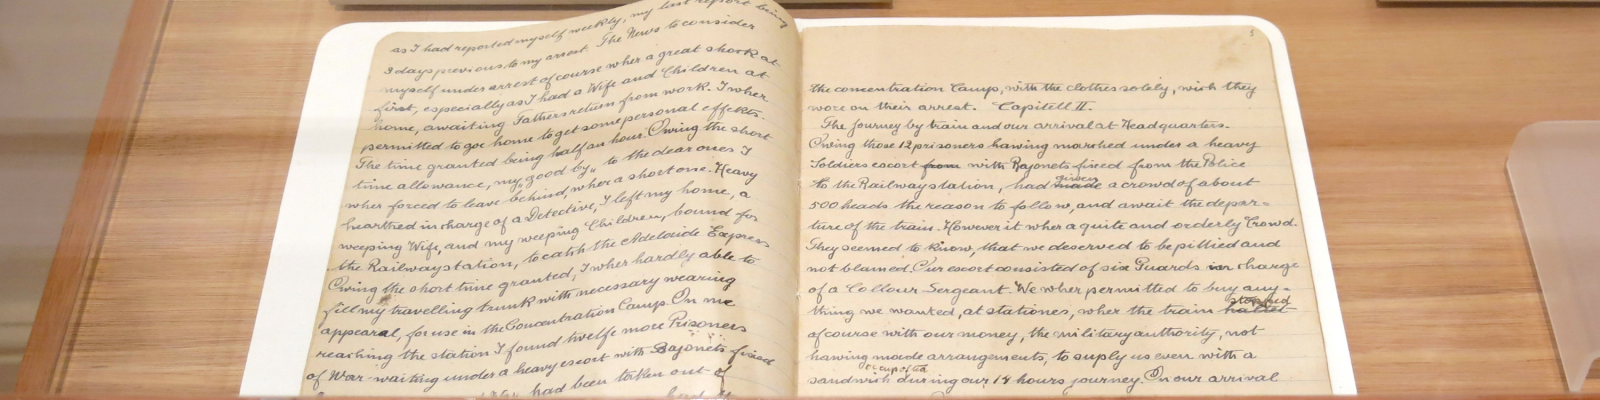 my last report being
as I had reported myself weekly,
3 days previous to my arrest. The News to consider
myself under arrest of course wher a great shock at
first, especially as I had a Wife and Children at
home, awaiting Fathers return from work. I wher
permitted to goe home to get some personal effects.
The time granted being half an hour. Owing the short
time allowance, my "good by" to the dear ones I
wher forced to leave behind, wher a short one. Heavy
hearthed in charge of a Detective, I left my home, a
weeping Wife, and my weeping Children, bound for
the Railwaystation, to catch the Adelaide Express
Owing the short time granted, I wher hardly able to
fill my travelling trunk with necessary wearing
appearal, for use in the Concentration Camp. On me
reaching the station I found twelfe more Prisoners
of War waiting under a heavy escort with Bajonets fixed
had been taken out of
5
the concentration Camp, with the clothes solely, wich they
wore on their arrest. Capitell II.
The journey by train and our arrival at Headquarters.
Owing those 12 prisoners hawing marshed under a heavy
Soldiers escort from with Bajonets fixed from the Police
to the Railwaystation, had made given a crowd of about
500 heads the reason to follow, and await the depar=
ture of the train. However it wher a quite and orderly Crowd.
They seemed to know, that we deserved to be pittied and
not blamed. Our escort consisted of six Guards in charge
of a Collour Sergeant. We wher permitted to buy any=
thing we wanted, at stationes, wher the train halted stopped
of course with our money, the military authority, not
hawing made arrangements, to suply us even with a
sandwich during our 18 hours journey. On our arrival